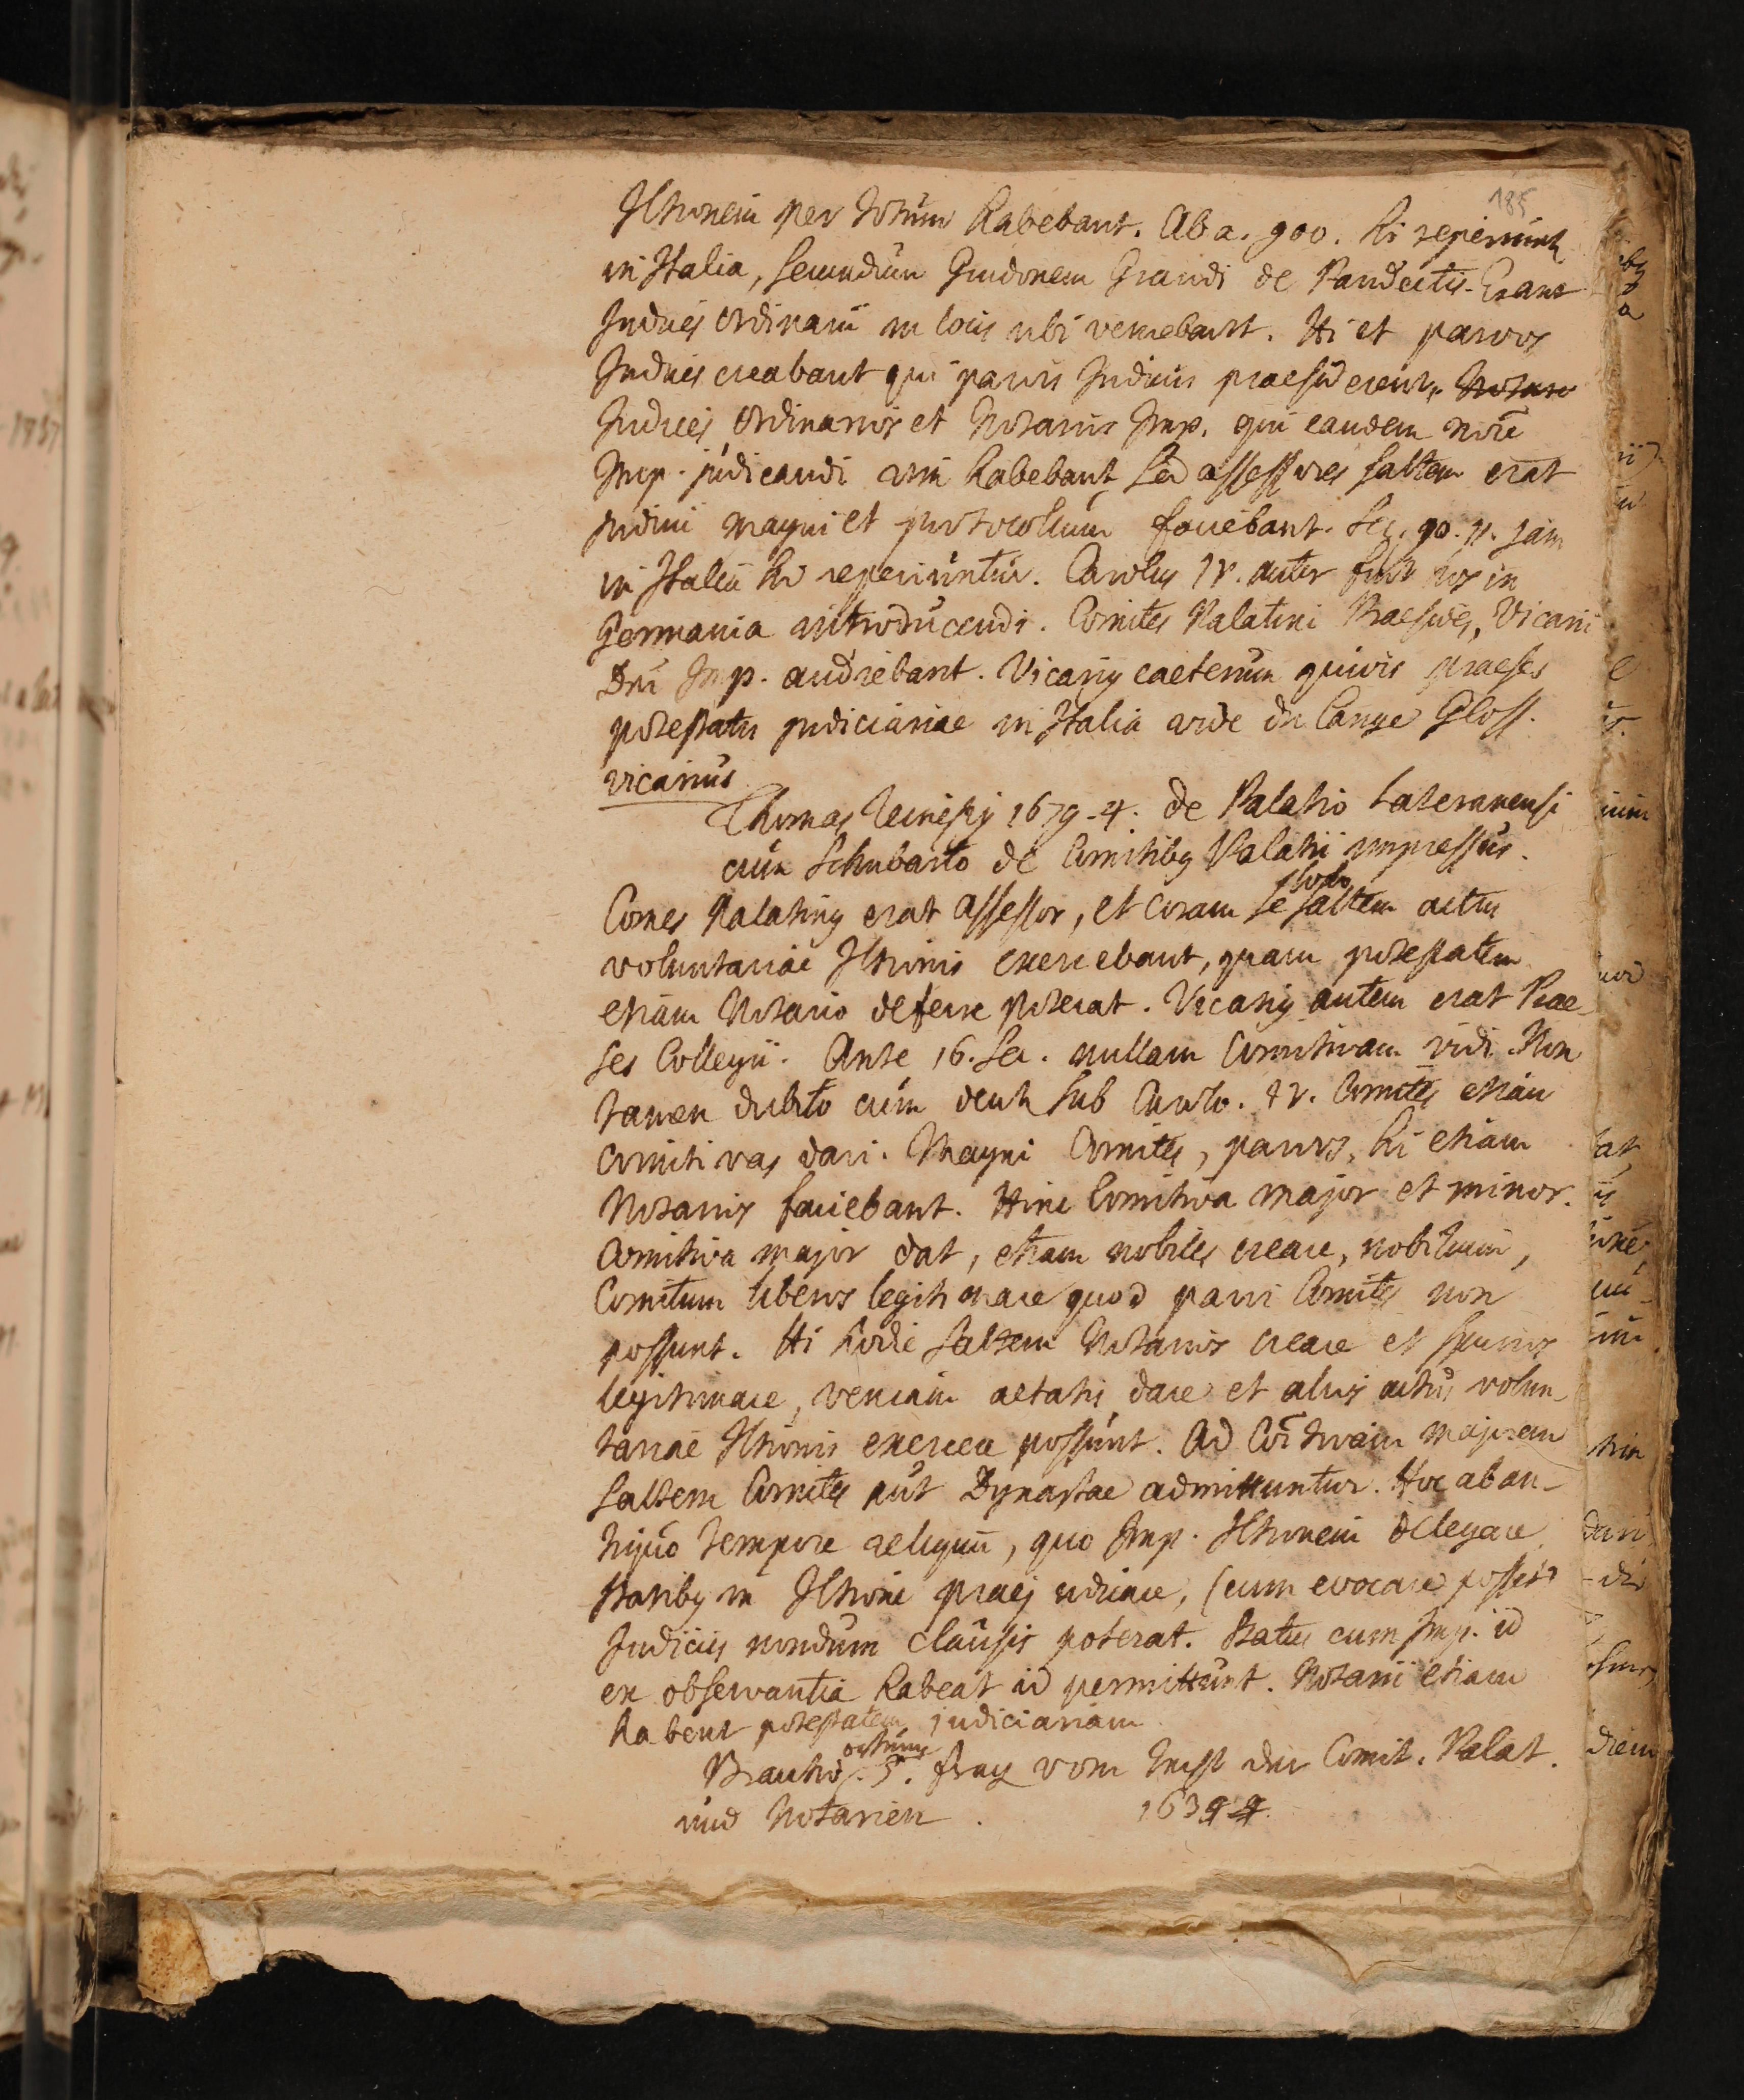 185
Jltionem per totum habebant. Ab a. 900. hi reperiunt
in Italia, secundum Guidonem Grandi de Pandectis. Erant
Judices ordinarii in locis ubi veniebant. Hi et parvos
Judices creabant qui parvis Judiciis praesiderent.
Judices ordinarios et Notarios Imp. qui eandem
Imp. judicandi habebant sed assessores saltem erat
judicii magni et protocollum faciebant. Sec. 90. 11. jam
in Italia hi reperiuntur. Carolus IV. autor fuit eos in
Germania introducendi. Comites Palatini Praesides, Vicarii
Dni Imp. audiebant. Vicarius caeterum quivis praeses
potestatis judiciariae in Italia vide du Cange Gloss.
vicarius
Thomas Reinesius 1679. 4. de Palatio Lateranensi
cum Schubarto de Comitibus Palatii impressus.
Comes Palatinus erat assessor, et coram se solo saltem actus
voluntariae Jltionis exercebant, quam potestatem
etiam Notario deferre poterat. Vicarius autem erat Prae-
ses Collegii. Ante 16. Sec. nullam Comitivam vidi. Non
tamen dubito cum sub Carolo. IV. Comites etiam
Comitivas dari. Magni Comites, parvos, hi etiam
Notarios faciebant. Hinc Comitiva major et minor.
Comitiva major dat, etiam nobiles creare, nobilium,
Comitum liberos legitimare quod parvi Comites non
possunt. Hi hodie saltem Notarios creare et spurios
legitimare, veniam aetatis dare et alios actus volun-
tariae Jltionis exercere possunt. Ad Coitivam majorem
saltem Comites aut Dynastae admittuntur. Hoc ab an-
tiquo tempore reliquum, quo Imp. Jltionem delegare
statibus in Jltione praejudicare, (cum evocare posset)
Judiciis nondum clausis poterat. Status cum Imp. id
ex observantia habeat id permittunt. Notarii etiam
habent potestatem judiciariam
vom der Comit. Palat.
und Notarien. 163